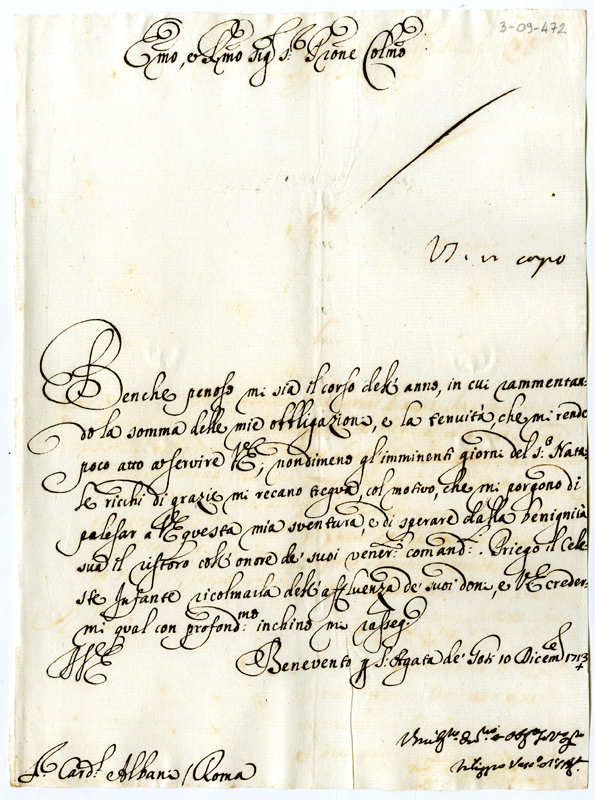 3-09-472
Emo, e Rmo Sig.r S.r Pron̄e Colmo
V. in capo
Benche penoso mi sia il corso dell' anno, in cui rammentan-
do la somma delle mie obbligazioni, e la tenuità, che mi rende
poco atto a servire V.E., nondimeno gl'imminenti giorni del S.o Nata-
le ricchi di grazie mi recano tregua, col motivo, che mi porgono di
palesar a V.E. questa mia sventura, e di sperare dalla benignità
sua il ristoro coll' onore de' suoi vener.i comand.i. Priego il Cele-
ste Infante ricolmarla dell' affluenza de' suoi doni, e V.E. creder-
mi qual con profond.mo inchino mi rasseg.o
Benevento p S. Agata de' Goti 10 Dicem.e 1713
S.r Card.l Albani / Roma
Filippo